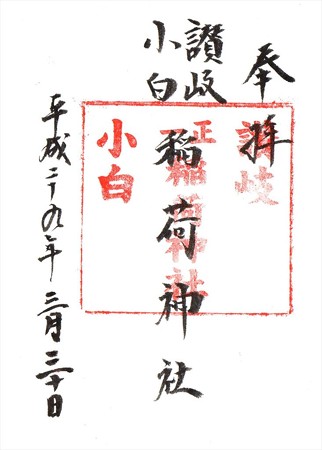 奉拝
讃岐
小白
稲荷神社
平成二十九年三月三十日
讃岐
正一位稲荷神社
小白